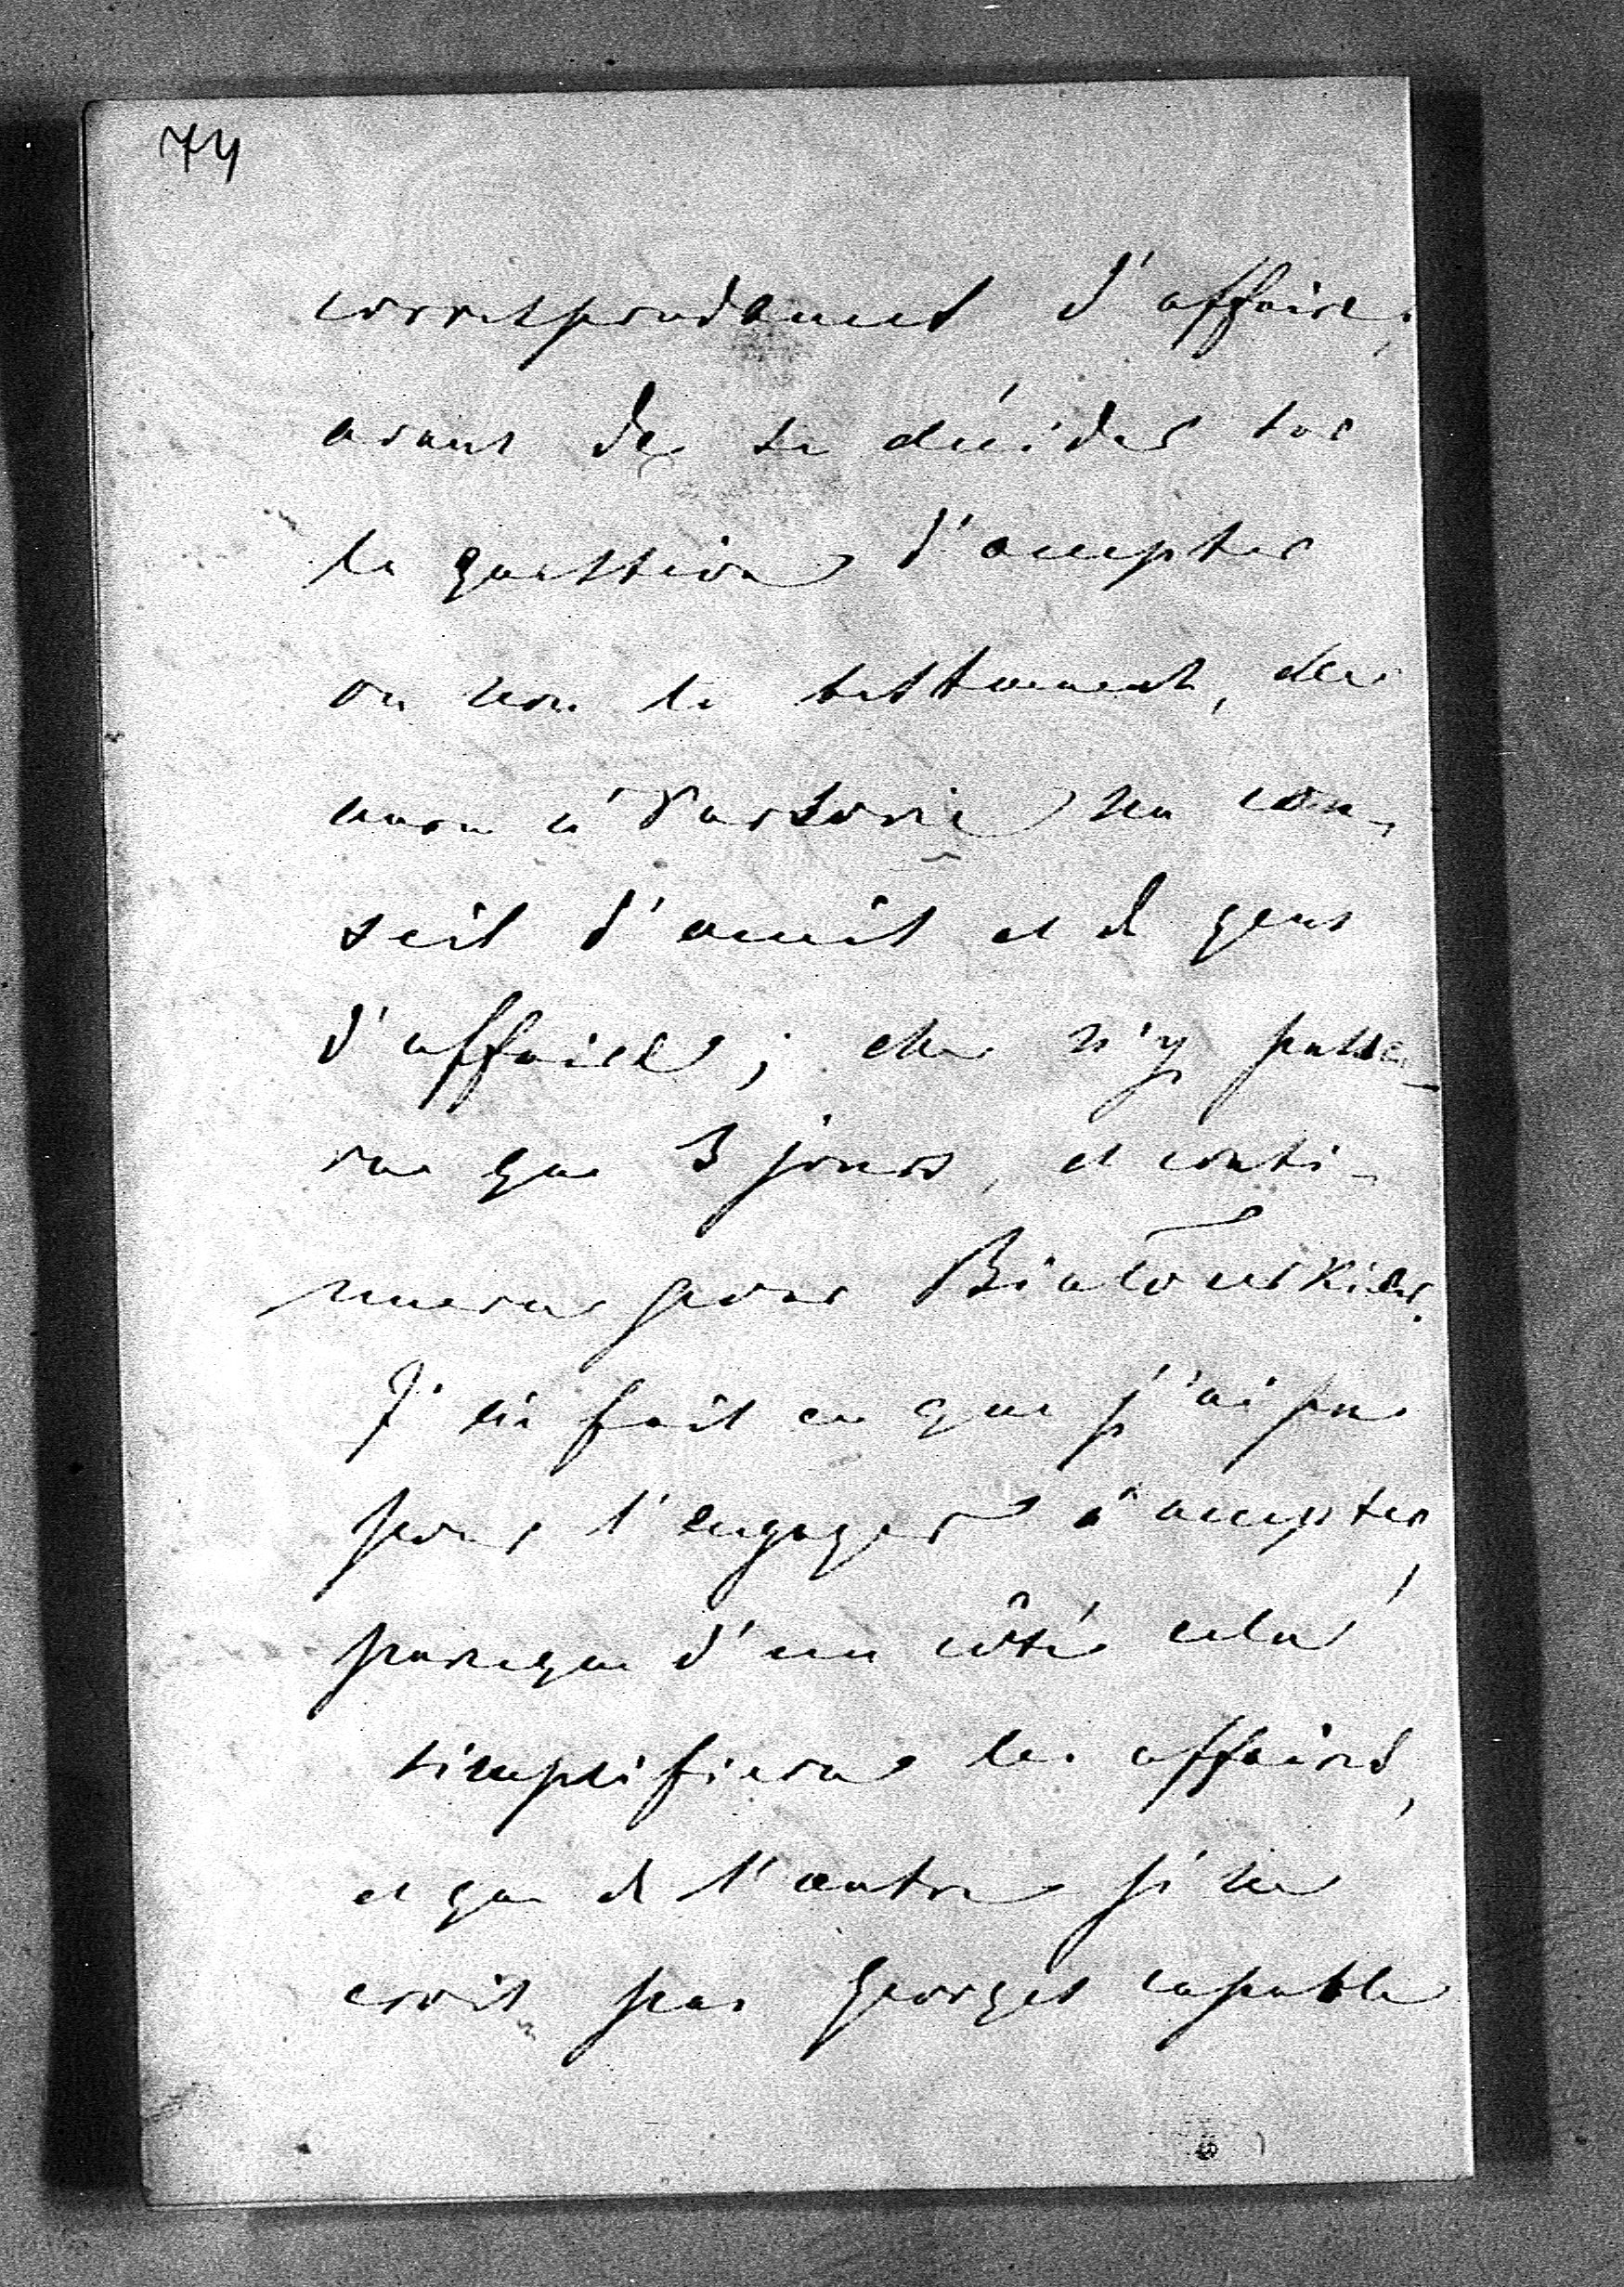 74
correspondant d'affaires,
avant de se décider sur
la question d'accepter
ou non le testament, elle
aura à Varsovie un con-
seil d'amis et de gens
d'affaires; elle n'y passe-
ra que 3 jours, et conti-
nuera pour
J'ai fait ce que j'ai pu
pour l'engager à accepter,
parceque d'un côté cela
simplifiera les affaires,
et que de l'autre je ne
crois pas Georges capable